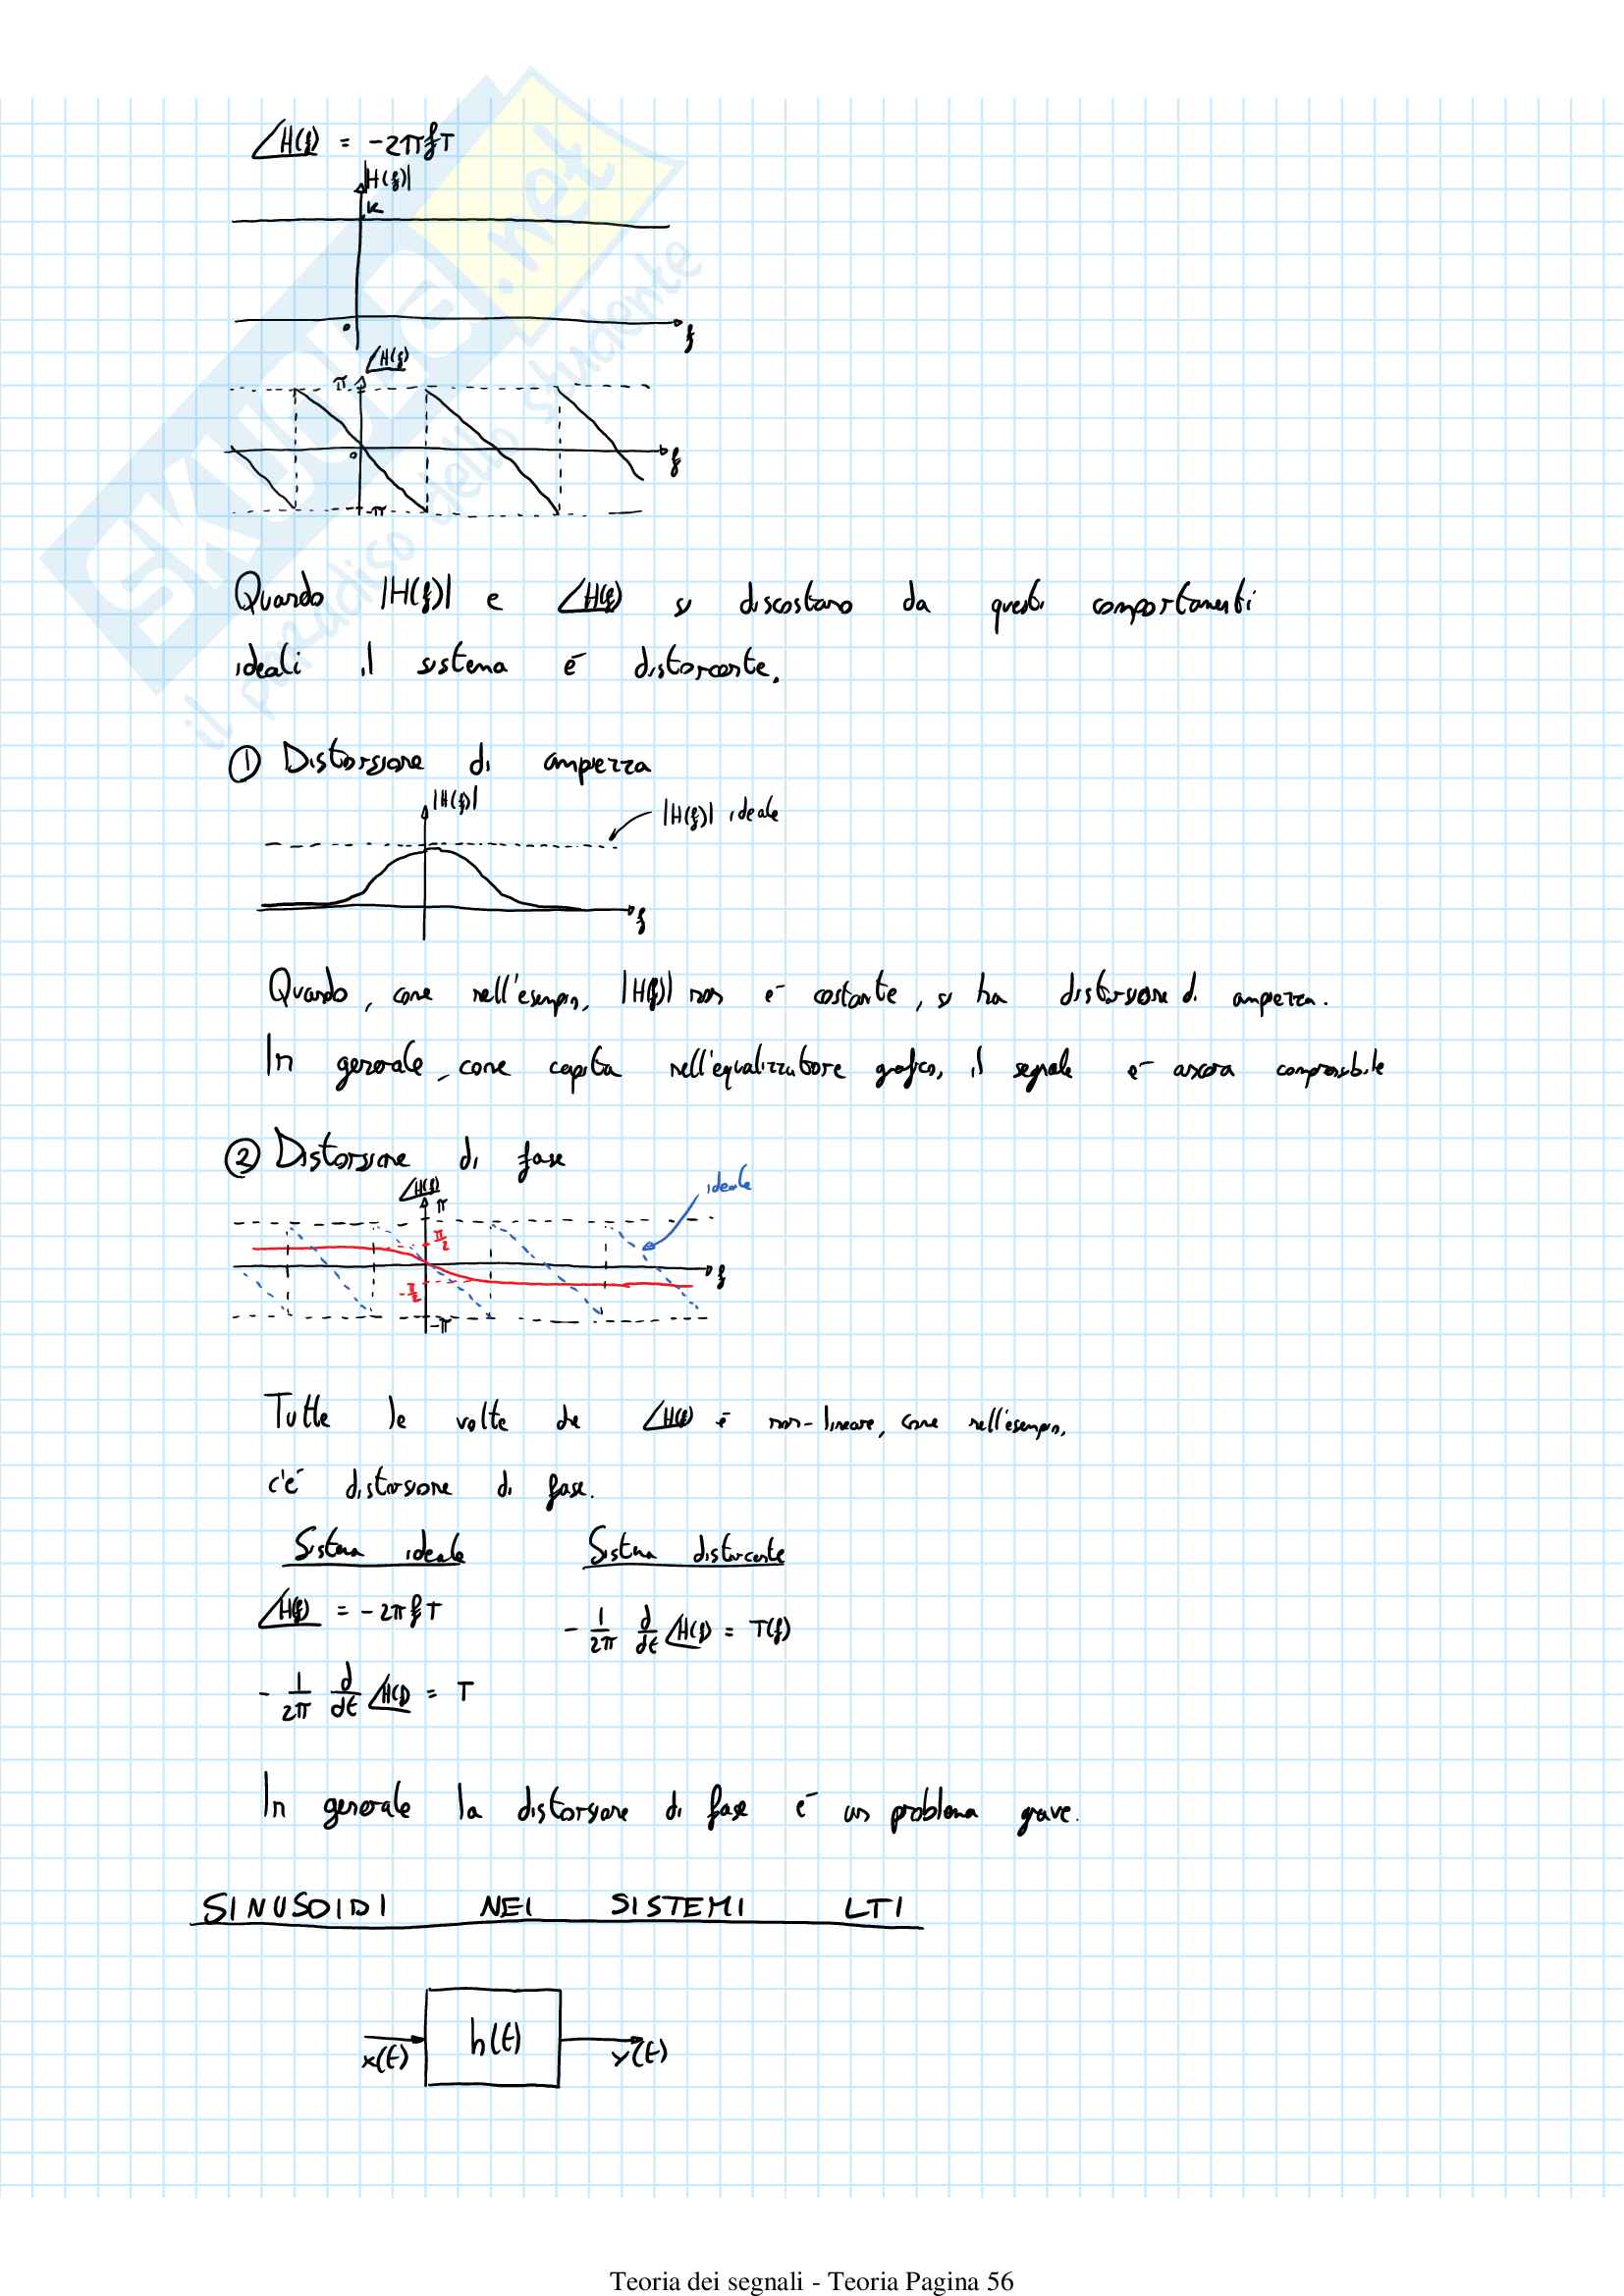 ∠H(f) = -2πfT
|H(f)|
K
0
f
∠H(f)
π
0
f
-π
Quando |H(f)| e ∠H(f) si discostano da questi comportamenti
ideali il sistema è distorcente.
① Distorsione di ampiezza
|H(f)|
|H(f)| ideale
f
Quando, come nell'esempio, |H(f)| non è costante, si ha distorsione di ampiezza.
In generale, come capita nell'equalizzatore grafico, il segnale è ancora comprensibile
② Distorsione di fase
∠H(f)
π
ideale
π/2
f
-π/2
-π
Tutte le volte che ∠H(f) è non-lineare, come nell'esempio,
c'è distorsione di fase.
Sistema ideale Sistema distorcente
∠H(f) = -2πfT
-1/2π d/dt ∠H(f) = T(f)
-1/2π d/dt ∠H(f) = T
In generale la distorsione di fase è un problema grave.
SINUSOIDI NEI SISTEMI LTI
x(t) h(t) y(t)
SKUOLA.net
il paradiso dello studente
Teoria dei segnali - Teoria Pagina 56